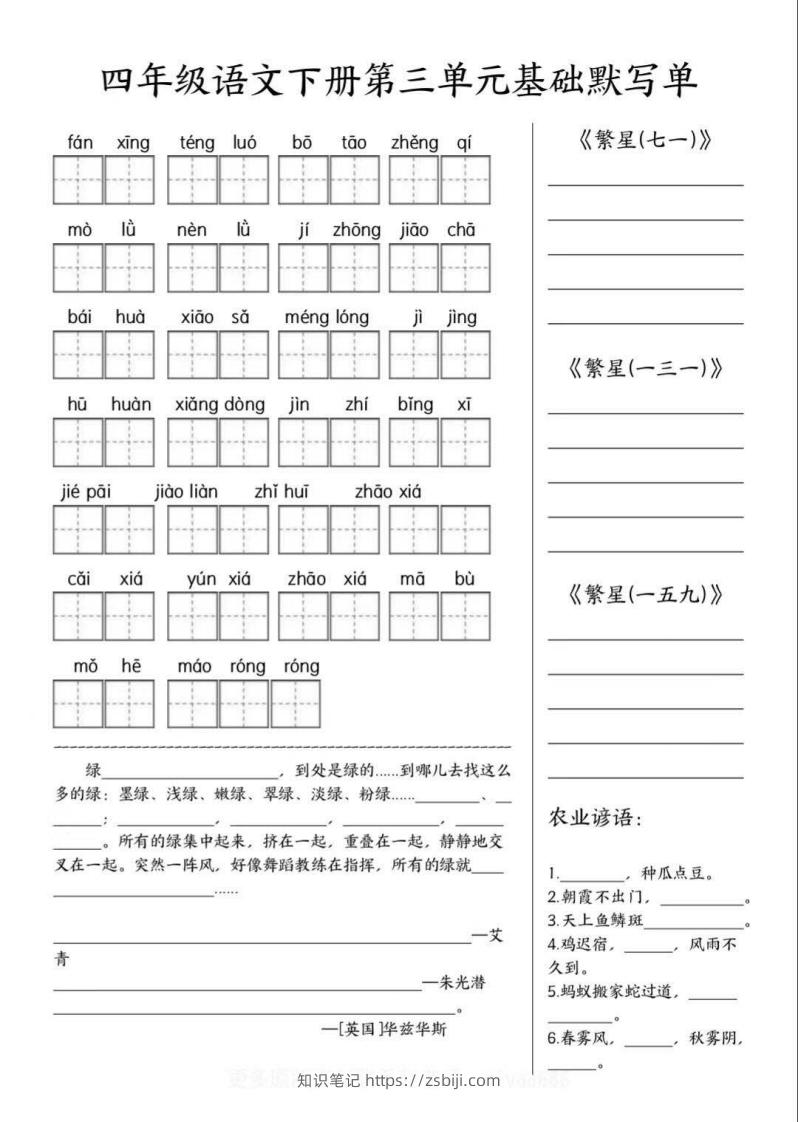 四年级语文下册第三单元基础默写单
fán xīng téng luó bō tāo zhěng qí
mò lǜ nèn lǜ jí zhōng jiāo chā
bái huà xiāo sǎ méng lóng jì jìng
hū huàn xiǎng dòng jìn zhí bīng xī
jié pāi jiào liàn zhǐ huī zhāo xiá
cǎi xiá yún xiá zhāo xiá mā bù
mǒ hē máo róng róng
绿____________________，到处是绿的……到哪儿去找这么
多的绿：墨绿、浅绿、嫩绿、翠绿、淡绿、粉绿……________、__
______；____________，____________，____________，______
______。所有的绿集中起来，挤在一起，重叠在一起，静静地交
叉在一起。突然一阵风，好像舞蹈教练在指挥，所有的绿就____
____________________……
—艾
青
—朱光潜
。
—[英国]华兹华斯
《繁星(七一)》
《繁星(一三一)》
《繁星(一五九)》
农业谚语：
1.________，种瓜点豆。
2.朝霞不出门，__________。
3.天上鱼鳞斑____________。
4.鸡迟宿，______，风雨不
久到。
5.蚂蚁搬家蛇过道，______
________。
6.春雾风，______，秋雾阴，
______。
知识笔记 https://zsbiji.com